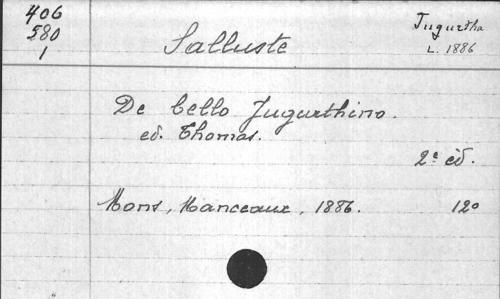 406
580
1
Salluste
Jugurtha
L. 1886
De bello Jugurthino.
ed. Thomas.
2e éd.
Mons, Manceaux, 1886. 12o